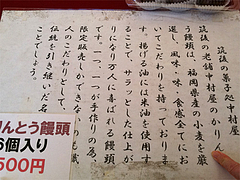 筑後の菓子処中村屋
筑後の老舗中村屋のかりん
う饅頭は、福岡県産の小麦を厳
し、風味・味・食感全てにお
いてこだわりを持っておりま
す。揚げる油には米油を使用す
ることで、サクッとした仕上が
りになり万人に喜ばれる饅頭
です。一つ、一つが手作りの為、
限定販売しかでき
人のこだわりとして、
伝統を引き継いだ名
ことでしょう。
りんとう饅頭
6個入り
500円